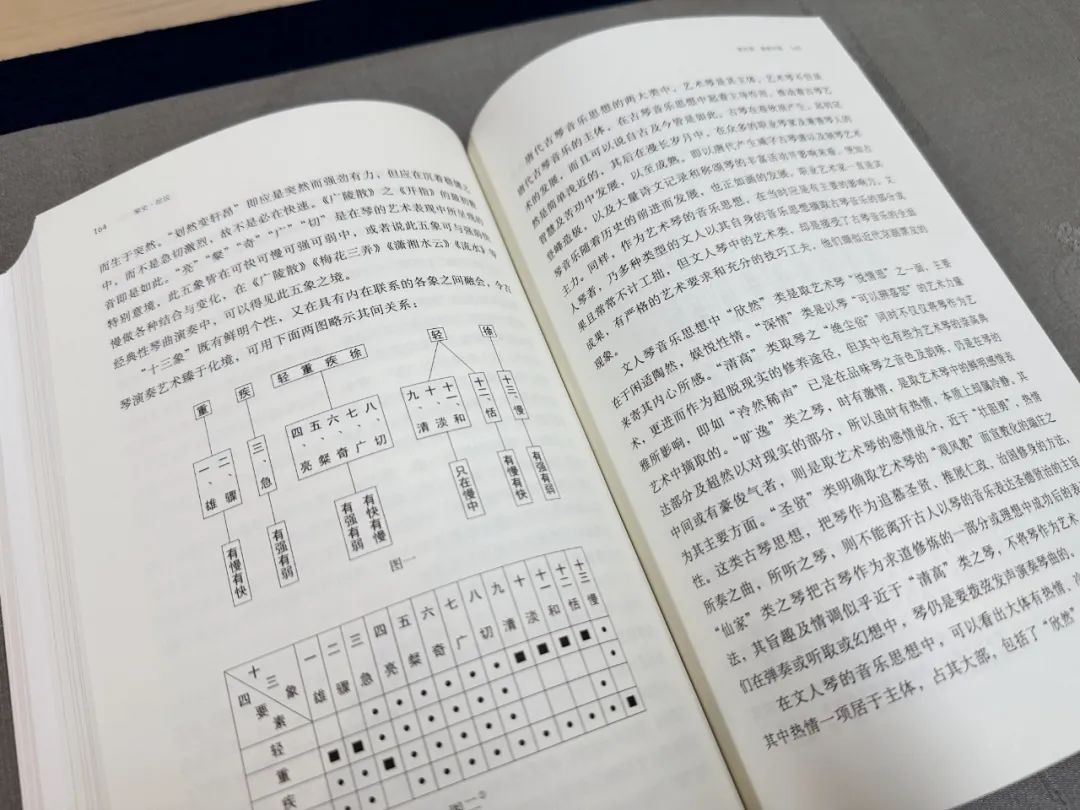 194
而生于突然。“划然变轩昂”即应是突然而强劲有力，但应在沉着稳健之
中，而不是急切激烈，故不是必在快速。《广陵散》之《开指》的强劲刺
音即是如此。“亮”“粲”“奇”“广”“切”是在琴的艺术表现中所显现的
特别意境，此五象皆在可快可慢可强可弱中，或者说此五象可与强弱快
慢做各种结合与变化，在《广陵散》《梅花三弄》《潇湘水云》《流水》等
经典性琴曲演奏中，可以得见此五象之境。
“十三象”既有鲜明个性，又在具有内在联系的各象之间融会，令古
琴演奏艺术臻于化境，可用下面两图略示其间关系：
重
疾
轻重疾徐
轻
徐
一、雄
二、骤
三、急
四、亮
五、粲
六、奇
七、广
八、切
九、清
十、淡
十一、和
十二、恬
十三、慢
有慢有快
有强有弱
有强有弱
有快有慢
只在慢中
有慢有快
有强有弱
图一
十三象
四要素
一 二 三 四 五 六 七 八 九 十 十一 十二 十三
雄 骤 急 亮 粲 奇 广 切 清 淡 和 恬 慢
轻
重
疾
图二
唐代古琴音乐思想的两大类中，艺术琴是其主体，艺术琴不但是
唐代古琴音乐的主体，在古琴音乐思想中起着主导作用，推动着古琴艺
术的发展，而且可以说自古及今皆是如此。
然是简单浅近的，其后在漫长岁月中，在众多的职业琴家及兼善琴人的
智慧及苦功中发展，以至成熟。即以唐代产生减字古琴谱以及弹琴艺术
登峰造极，以及大量诗文记录和称颂琴的丰富活动许影响来看，
琴音乐随着历史的前进而发展，也正如画的发展。职业艺术家一直是其
主力。同样，作为艺术琴的音乐思想，在当时应是有主要的影响力。又
人琴者，乃多种类型的文人以其自身的音乐思想撷取古琴音乐的部分成
果且常常不计工拙，但文人琴中的艺术类，却是接受了古琴音乐的全面
成果，有严格的艺术要求和充分的技巧工夫，他们颇似近代京剧票友的
现象。
文人琴音乐思想中“欣然”类是取艺术琴“悦情愿”之一面，主要
在于闲适陶然，娱悦性情。“深情”类是以琴“可以释喜怒”的艺术力量
来寄其内心所感。“清高”类取琴之“绝尘俗”同时不仅仅将琴作为艺
术，更进而作为超脱现实的修养途径，但其中也有些为艺术琴的崇高典
雅所影响，即如“泠然稀声”已是在品味琴之音色及韵味，仍是在琴的
艺术中摘取的。“旷逸”类之琴，时有激情，是取艺术琴中的鲜明感情表
达部分及超然以对现实的部分，所以虽时有热情，本质上却属冷静。其
中间或有豪俊气者，则是取艺术琴的感情成分，近于“壮胆勇”，热情
为其主要方面。“圣贤”类明确取艺术琴的“观风教”而宣教化的端庄之
性。这类古琴思想，把琴作为追慕圣贤、推展仁政、治国修身的方法，
所奏之曲，所听之琴，则不能离开古人以琴的音乐表达圣德贤治的主旨
“仙家”类之琴把古琴作为求道修炼的一部分或理想中成功后的表
法，其旨趣及情调似乎近于“清高”类之琴，不将琴作为艺术
们在弹奏或听取或幻想中，琴仍是要拨弦发声演奏琴曲的。
在文人琴的音乐思想中，可以看出大体有热情、冷
其中热情一项居于主体，占其大部，包括了“欣然”